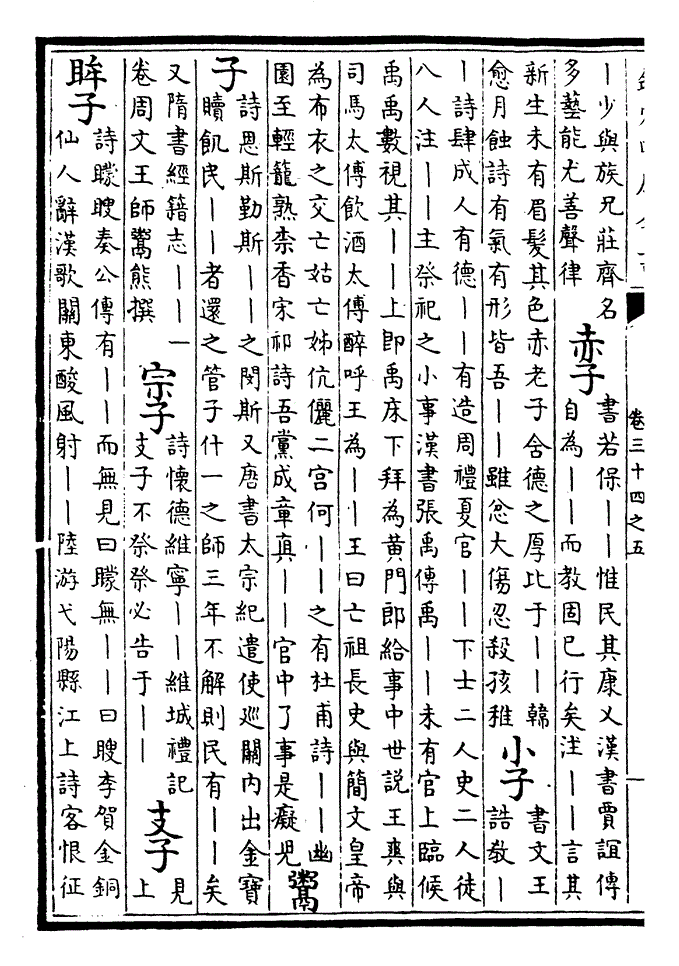 卷三十四之五
一
丨少與族兄莊齊名
多藝能尤善聲律
赤子
書若保丨丨惟民其康乂漢書賈誼傳
自為丨丨而教固已行矣注丨丨言其
新生未有眉髮其色赤老子含德之厚比于丨丨韓
愈月蝕詩有氣有形皆吾丨丨雖忿大傷忍殺孩稚
小子
書文王
誥教丨
丨詩肆成人有德丨丨有造周禮夏官丨丨下士二人史二人徒
八人注丨丨主祭祀之小事漢書張禹傳禹丨丨未有官上臨候
禹禹數視其丨丨上即禹床下拜為黄門郎給事中世説王爽與
司馬太傅飲酒太傅醉呼王為丨丨王曰亡祖長史與簡文皇帝
為布衣之交亡姑亡姊伉儷二宫何丨丨之有杜甫詩丨丨幽
園至輕籠熟柰香宋祁詩吾黨成章真丨丨官中了事是癡兒
鬻
子
詩恩斯勤斯丨丨之閔斯又唐書太宗紀遣使巡關内出金寶
贖飢民丨丨者還之管子什一之師三年不解則民有丨丨矣
又隋書經籍志丨丨一
卷周文王師鬻熊撰
宗子
詩懷德維寧丨丨維城禮記
支子不祭祭必告于丨丨
支子
見
上
眸子
詩矇瞍奏公傳有丨丨而無見曰矇無丨丨曰瞍李賀金銅
仙人辭漢歌關東酸風射丨丨陸游弋陽縣江上詩客恨征